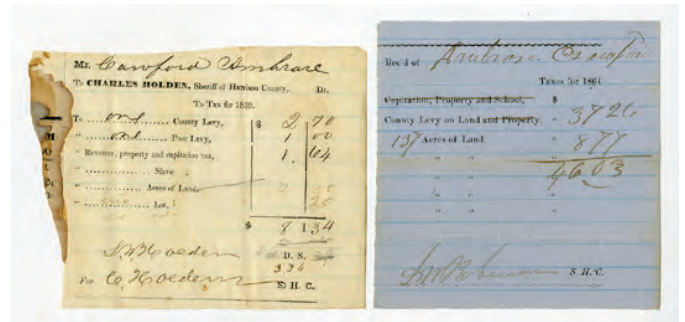 Mr. Cawford Ambrose
To CHARLES HOLDEN, Sheriff of Harrison County, Dr.
To Tax for 1859.
To one County Levy, $ 2 70
" one Poor Levy, 1 00
" Revenue, property and capitation tax, 1. 64
" Slave
" Acres of Land, 2
" Lot, 20
$ 8 134
D. S.
336
For C. Holden S. H. C.
Rec'd of Ambrose Crawfor
Taxes for 1864
Capitation, Property and School, $
County Levy on Land and Property, " 37 26
137 Acres of Land " 8 77
" " 46 03
" " "
" " "
S. H. C.